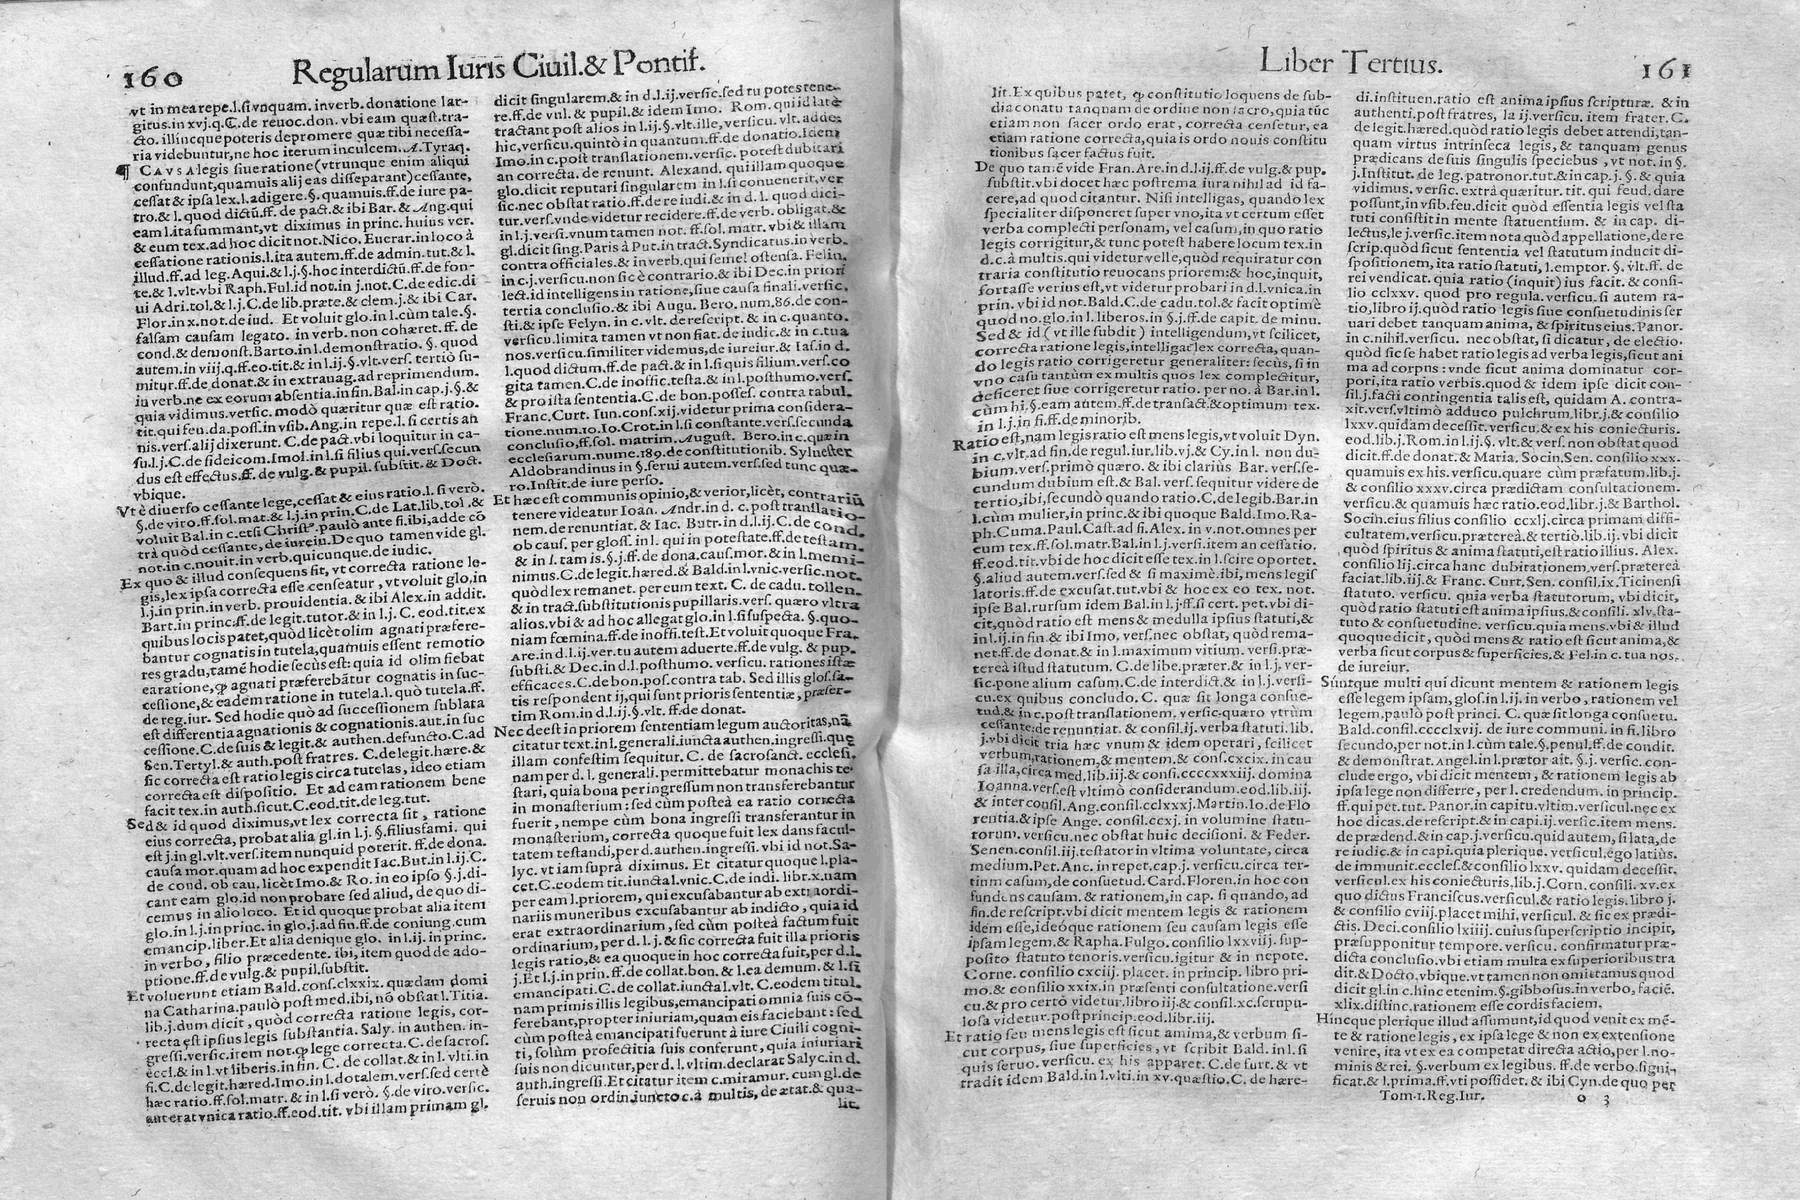 160 Regularum Iuris Ciuil.& Pontif.
vt in mea repe.l.si vnquam. in verb. donatione lar-
gitus.in xvj.q.C. de reuoc.don. vbi eam quæst.tra-
cto. illincque poteris depromere quæ tibi necessa-
ria videbuntur,ne hoc iterum inculcem. A.Tyraq.
¶ CAVSA legis siue ratione (vtrunque enim aliqui
confundunt,quamuis alij eas disseparant) cessante,
cessat & ipsa lex.l.adigere.§.quamuis.ff.de iure pa-
tro.& l. quod dictũ.ff. de pact.& ibi Bar. & Ang.qui
eam l.ita summant, vt diximus in princ. huius ver.
& eum tex.ad hoc dicit not. Nico. Euerar.in loco à
cessatione rationis.l.ita autem.ff.de admin.tut.& l.
illud.ff.ad leg. Aqui.& l.j.§.hoc interdictũ.ff.de fon-
te.& l.vlt.vbi Raph.Ful.id not.in j.not.C.de edic.di
ui Adri.tol.& l.j.C.de lib.præte.& clem.j.& ibi Car.
Flor.in x.not.de iud. Et voluit glo.in l.cùm tale.§.
falsam causam legato. in verb. non cohæret. ff. de
cond.& demonst. Barto.in l.demonstratio. §. quod
autem.in viij.q.ff.eo.tit.& in l.ij.§.vlt.vers. tertiò su-
mitur.ff.de donat.& in extrauag.ad reprimendum.
in verb.ne ex eorum absentia.in fin.Bal.in cap.j.§.&
quia vidimus.versic. modò quæritur quæ est ratio.
tit.qui feu.da.poss.in vsib.Ang.in repe.l. si certis an
nis.vers.alij dixerunt. C.de pact.vbi loquitur in ca-
su.l.j.C.de fideicom.Imol.in l.si filius qui vers.secun
dus est effectus.ff. de vulg.& pupil.substit.& Doct.
vbique.
Vt è diuerso cessante lege,cessat & eius ratio.l. si verò.
§.de viro.ff.sol.mat.& l.j.in prin.C.de Lat.lib.tol.&
voluit Bal.in c.etsi Christ⁹.paulò ante fi.ibi,adde cõ
trà quòd cessante,de iureiu.De quo tamen vide gl.
not.in c.nouit.in verb.quicunque.de iudic.
Ex quo & illud consequens fit, vt correcta ratione le-
gis,lex ipsa correcta esse censeatur, vt voluit glo.in
l.j.in prin.in verb. prouidentia.& ibi Alex.in addit.
Bart.in princ.ff.de legit.tutor.& in l.j. C. eod.tit.ex
quibus locis patet,quòd licèt olim agnati præfere-
bantur cognatis in tutela,quamuis essent remotio
res gradu,tamẽ hodie secùs est: quia id olim fiebat
ea ratione,ꝙ agnati præferebãtur cognatis in suc-
cessione,& eadem ratione in tutela.l. quò tutela.ff.
de reg.iur. Sed hodie quò ad successionem sublata
est differentia agnationis & cognationis.aut.in suc
cessione.C.de suis & legit.& authen.defuncto.C.ad
Sen. Tertyl.& auth.post fratres. C.de legit.hære.&
sic correcta est ratio legis circa tutelas, ideo etiam
correcta est dispositio. Et ad eam rationem bene
facit tex.in auth.sicut.C.eod.tit.de leg.tut.
Sed & id quod diximus,vt lex correcta sit, ratione
eius correcta, probat alia gl.in l.j. §.filiusfami. qui
est j.in gl.vlt.vers.item nunquid poterit. ff.de dona.
causa mor.quam ad hoc expendit Iac. But.in l.ij.C.
de cond. ob cau. licèt Imo.& Ro. in eo ipso §.j.di-
cant eam glo.id non probare sed aliud, de quo di-
cemus in alio loco. Et id quoque probat alia item
glo.in l.j.in princ.in glo.j.ad fin.ff.de coniung.cum
emancip.liber.Et alia denique glo. in l.ij.in princ.
in verbo, filio præcedente. ibi, item quod de ado-
ptione.ff.de vulg.& pupil.substit.
Et voluerunt etiam Bald.cons.clxxix. quædam domi
na Catharina.paulò post med.ibi,nõ obstat l.Titia.
lib.j.dum dicit, quòd correcta ratione legis, cor-
recta est ipsius legis substantia. Saly. in authen. in-
gressi.versic.item not.ꝙ lege correcta. C.de sacros.
eccl.& in l. vt liberis.in fin. C. de collat.& in l. vlti.in
fi.C.de legit.hæred.Imo.in l.dotalem.vers.sed certè
hæc ratio.ff.sol.matr. & in l.si verò. §.de viro.versic.
aut erat vnica ratio.ff.eod.tit. vbi illam primam gl.
dicit singularem.& in d.l.ij.versic.sed tu potes tene-
re.ff.de vul.& pupil.& idem Imo. Rom. qui id latè
tractant post alios in l.ij.§.vlt.ille, versicu. vlt. adde
hic,versicu.quintò in quantum.ff.de donatio.Idem
Imo.in c.post translationem.versic. potest dubitari
an correcta. de renunt. Alexand. qui illam quoque
glo.dicit reputari singularem in l.si conuenerit,ver
sic.nec obstat ratio.ff.de re iudi.& in d. l. quod dici-
tur.vers.vnde videtur recidere.ff.de verb. obligat.&
in l.j.versi.vnum tamen not. ff.sol. matr. vbi & illam
gl.dicit sing.Paris à Put.in tract.Syndicatus.in verb.
contra officiales.& in verb.qui semel ostensa. Felin.
in c.j.versicu.non sic è contrario.& ibi Dec.in priori
lect.id intelligens in ratione,siue causa finali.versic.
tertia conclusio.& ibi Augu. Bero. num.86. de con-
sti.& ipse Felyn. in c. vlt. de rescript. & in c.quanto.
versicu.limita tamen vt non fiat. de iudic.& in c.tua
nos.versicu.similiter videmus,de iureiur.& Ias.in d.
l.quod dictum.ff.de pact.& in l.si quis filium.vers.co
gita tamen.C.de inoffic.testa.& in l.posthumo.vers.
& pro ista sententia.C.de bon.posses. contra tabul.
Franc.Curt. Iun.cons.xij.videtur prima considera-
tione.num.10.Io.Crot.in l.si constante.vers.secunda
conclusio,ff.sol. matrim.August. Bero.in c.quæ in
ecclesiarum.nume.189.de constitutionib. Syluester
Aldobrandinus in §.serui autem.vers.sed tunc quæ-
ro.Instit.de iure perso.
Et hæc est communis opinio,& verior,licèt, contrariũ
tenere videatur Ioan. Andr.in d. c. post translatio-
nem.de renuntiat.& Iac. Butr.in d.l.ij.C.de cond.
ob caus. per gloss. in l. qui in potestate.ff.de testam.
& in l. tam is. §.j.ff.de dona.caus.mor.& in l.memi-
nimus.C.de legit.hæred.& Bald.in l.vnic.versic.not.
quòd lex remanet. per eum text. C. de cadu. tollen.
& in tract.substitutionis pupillaris.vers. quæro vltra
alios.vbi & ad hoc allegat glo.in l.si suspecta. §.quo-
niam fœmina.ff.de inoffi.test.Et voluit quoque Fra.
Are.in d.l.ij.ver.tu autem aduerte.ff.de vulg. & pup.
substi.& Dec.in d.l.posthumo. versicu. rationes istæ
efficaces. C.de bon.pos.contra tab. Sed illis glos.sa-
tis respondent ij,qui sunt prioris sententiæ, præser-
tim Rom.in d.l.ij.§.vlt.ff.de donat.
Nec deest in priorem sententiam legum auctoritas,nã
citatur text.in l.generali.iuncta authen.ingressi.que
illam confestim sequitur. C. de sacrosanct. ecclesi.
nam per d. l. generali.permittebatur monachis te-
stari, quia bona per ingressum non transferebantur
in monasterium: sed cùm posteà ea ratio correcta
fuerit, nempe cùm bona ingressi transferantur in
monasterium, correcta quoque fuit lex dans facul-
tatem testandi,per d.authen.ingressi. vbi id not.Sa-
lyc. vt iam suprà diximus. Et citatur quoque l.pla-
cet.C.eodem tit.iuncta l.vnic.C.de indi. libr.x.nam
per eam l.priorem, qui excusabantur ab extraordi-
nariis muneribus excusabantur ab indicto, quia id
erat extraordinarium, sed cùm posteà factum fuit
ordinarium,per d. l.j.& sic correcta fuit illa prioris
legis ratio,& ea quoque in hoc correcta fuit,per d.l.
j.Et l.j.in prin.ff.de collat.bon. & l.ea demum. & l.si
emancipati.C.de collat.iuncta l.vlt. C.eodem titul.
nam primis illis legibus,emancipati omnia suis cõ-
ferebant,propter iniuriam,quam eis faciebant: sed
cùm posteà emancipati fuerunt à iure Ciuili cogni-
ti, solùm profectitia suis conferunt, quia iniuriari
suis non dicuntur,per d. l.vltim.declarat Salyc.in d.
auth.ingressi.Et citatur item c.miramur. cum gl.de
seruis non ordin.iuncto c.à multis, de ætat.& qua-
lit.
Liber Tertius. 161
lit. Ex quibus patet, ꝙ constitutio loquens de sub-
diaconatu tanquam de ordine non sacro,quia tũc
etiam non sacer ordo erat, correcta censetur, ea
etiam ratione correcta,quia is ordo nouis constitu
tionibus sacer factus fuit.
De quo tan.ẽ vide Fran.Are.in d.l.ij.ff.de vulg.& pup.
substit.vbi docet hæc postrema iura nihil ad id fa-
cere,ad quod citantur. Nisi intelligas, quando lex
specialiter disponeret super vno,ita vt certum esset
verba complecti personam, vel casum,in quo ratio
legis corrigitur,& tunc potest habere locum tex.in
d.c.à multis.qui videtur velle,quòd requiratur con
traria constitutio reuocans priorem:& hoc,inquit,
fortasse verius est,vt videtur probari in d.l.vnica.in
prin. vbi id not. Bald.C.de cadu.tol.& facit optimè
quod no.glo.in l.liberos.in §.j.ff.de capit. de minu.
Sed & id (vt ille subdit) intelligendum,vt scilicet,
correcta ratione legis,intelligatur lex correcta, quan-
do legis ratio corrigeretur generaliter: secùs, si in
vno casu tantùm ex multis quos lex complectitur,
deficeret siue corrigeretur ratio. per no.à Bar.in l.
cùm hi.§.eam autem.ff.de transact.&optimum tex.
in l.j.in fi.ff.de minorib.
Ratio est,nam legis ratio est mens legis,vt voluit Dyn.
in c. vlt.ad fin.de regul.iur.lib.vj.& Cy.in l. non du-
bium.vers.primò quæro. & ibi clarius Bar. vers.se-
cundum dubium est.& Bal. vers.sequitur videre de
tertio,ibi,secundò quando ratio.C.de legib.Bar.in
l.cùm mulier,in princ.& ibi quoque Bald.Imo.Ra-
ph.Cuma.Paul.Cast.ad fi.Alex.in v.not.omnes per
eum tex.ff.sol.matr.Bal.in l.j.versi.item an cessatio.
ff.eod.tit.vbi de hoc dicit esse tex.in l.scire oportet.
§.aliud autem.vers.sed & si maximè.ibi,mens legis
latoris.ff.de excusat.tut.vbi & hoc ex eo tex. not.
ipse Bal.rursum idem Bal.in l.j.ff.si cert. pet.vbi di-
cit,quòd ratio est mens & medulla ipsius statuti,&
in l.ij.in fin.& ibi Imo. vers.nec obstat, quòd rema-
net.ff.de donat.& in l.maximum vitium. versi.præ-
tereà istud statutum. C.de libe.præter.& in l.j. ver-
sic.pone alium casum.C.de interdict.& in l.j.versi-
cu.ex quibus concludo. C. quæ sit longa consue-
tud.& in c.post translationem, versic.quæro vtrùm
cessante:de renuntiat. & consil.ij. verba statuti. lib.
j.vbi dicit tria hæc vnum & idem operari, scilicet
verbum,rationem,& mentem.& cons.cxcix. in cau
sa illa,circa med.lib.iij.& consi.ccccxxxiij. domina
Ioanna.vers.est vltimò considerandum.eod.lib.iij.
& inter consil.Ang.consil.cclxxxj.Martin.Io.de Flo
rentia.& ipse Ange. consil.ccxj. in volumine statu-
torum. versicu.nec obstat huic decisioni. & Feder.
Senen.consil.iij.testator in vltima voluntate, circa
medium.Pet. Anc. in repet.cap.j. versicu.circa ter-
tium casum,de consuetud. Card.Floren.in hoc con
fundens causam.& rationem,in cap. si quando, ad
fin.de rescript.vbi dicit mentem legis & rationem
idem esse,ideóque rationem seu causam legis esse
ipsam legem.& Rapha. Fulgo. consilio lxxviij. sup-
posito statuto tenoris.versicu.igitur & in nepote.
Corne. consilio cxciij. placet. in princip. libro pri-
mo.& consilio xxix.in præsenti consultatione.versi
cu.& pro certò videtur.libro iij.& consil.xc.scrupu-
losa videtur.post princip.eod.lib.iij.
Et ratio seu mens legis est sicut amima,& verbum si-
cut corpus, siue superficies, vt scribit Bald. in l. si
quis seruo. versicu. ex his apparet. C. de furt. & vt
tradit idem Bald.in l.vlti.in xv.quæstio.C. de hære-
di.instituen.ratio est anima ipsius scripturæ. & in
authenti.post fratres, la ij.versicu. item frater. C.
de legit.hæred.quòd ratio legis debet attendi,tan-
quam virtus intrinseca legis,& tanquam genus
prædicans de suis singulis speciebus ,vt not.in §.
j.Institut. de leg.patronor.tut.& in cap.j. §.& quia
vidimus. versic.extrà quæritur. tit. qui feud. dare
possunt,in vsib.feu.dicit quòd essentia legis vel sta
tuti consistit in mente statuentium. & in cap. di-
lectus,le j.versic.item nota quòd appellatione,de re
scrip.quòd sicut sententia vel statutum inducit di-
spositionem, ita ratio statuti, l.emptor. §. vlt.ff. de
rei vendicat. quia ratio (inquit) ius facit. & consi-
lio cclxxv. quod pro regula. versicu.si autem ra-
tio,libro ij.quòd ratio legis siue consuetudinis ser
uari debet tanquam anima, & spiritus eius. Panor.
in c.nihil. versicu. nec obstat, si dicatur, de electio.
quòd sic se habet ratio legis ad verba legis,sicut ani
ma ad corpus : vnde sicut anima dominatur cor-
pori,ita ratio verbis.quod & idem ipse dicit con-
sil.j.facti contingentia talis est, quidam A. contra-
xit.vers.vltimò adduco pulchrum.libr.j.& consilio
lxxv.quidam decessit.versicu.& ex his coniecturis.
eod.lib.j.Rom.in l.ij.§. vlt.& vers. non obstat quod
dicit.ff.de donat.& Maria. Socin.Sen. consilio xxx.
quamuis ex his. versicu.quare cùm præfatum.lib.j.
& consilio xxxv.circa prædictam consultationem.
versicu.& quamuis hæc ratio.eod.libr.j.& Barthol.
Socin.eius filius consilio ccxlj.circa primam diffi-
cultatem.versicu.prætereà.& tertiò.lib.ij.vbi dicit
quòd spiritus & anima statuti,est ratio illius. Alex.
consilio lij.circa hanc dubitationem.vers.prætereà
faciat.lib.iij.& Franc. Curt.Sen. consil.ix.Ticinensi
statuto. versicu. quia verba statutorum, vbi dicit,
quòd ratio statuti est anima ipsius.& consili. xlv.sta-
tuto & consuetudine. versicu.quia mens.vbi & illud
quoque dicit, quòd mens & ratio est sicut anima,&
verba sicut corpus & superficies.& Fel.in c. tua nos.
de iureiur.
Sũntque multi qui dicunt mentem & rationem legis
esse legem ipsam, glos.in l.ij. in verbo, rationem vel
legem.paulò post princi. C. quæ sit longa consuetu.
Bald. consil.cccclxvij. de iure communi. in fi. libro
secundo,per not.in l.cùm tale.§.penul.ff.de condit.
& demonstrat. Angel.in l.prætor ait. §.j. versic. con-
clude ergo, vbi dicit mentem, & rationem legis ab
ipsa lege non differre, per l.credendum. in princip.
ff.qui pet.tut. Panor.in capitu.vltim.versicul.nec ex
hoc dicas.de rescript.& in capi.ij. versic.item mens.
de prædend.& in cap.j.versicu.quid autem, si lata,de
re iudic.& in capi.quia plerique. versicul.ego latiùs.
de immunit.eccles.& consilio lxxv. quidam decessit.
versicul.ex his coniecturis.lib.j. Corn. consili. xv.ex
quo dictus Franciscus.versicul.& ratio legis. libro j.
& consilio cviij.placet mihi, versicul. & sic ex prædi-
ctis. Deci.consilio lxiiij. cuius superscriptio incipit,
præsupponitur tempore. versicu. confirmatur præ-
dicta conclusio.vbi etiam multa ex superioribus tra
dit.& Docto.vbique.vt tamen non omittamus quod
dicit gl.in c.hinc etenim.§.gibbosus.in verbo, faciẽ.
xlix.distinc.rationem esse cordis faciem.
Hincque plerique illud assumunt,id quod venit ex mẽ-
te & ratione legis, ex ipsa lege & non ex extensione
venire, ita vt ex ea competat directa actio,per l.no-
minis & rei. §.verbum ex legibus. ff.de verbo.signi-
ficat.& l.prima.ff.vti possidet.& ibi Cyn.de quo per
Tom.1.Reg.Iur. o 3